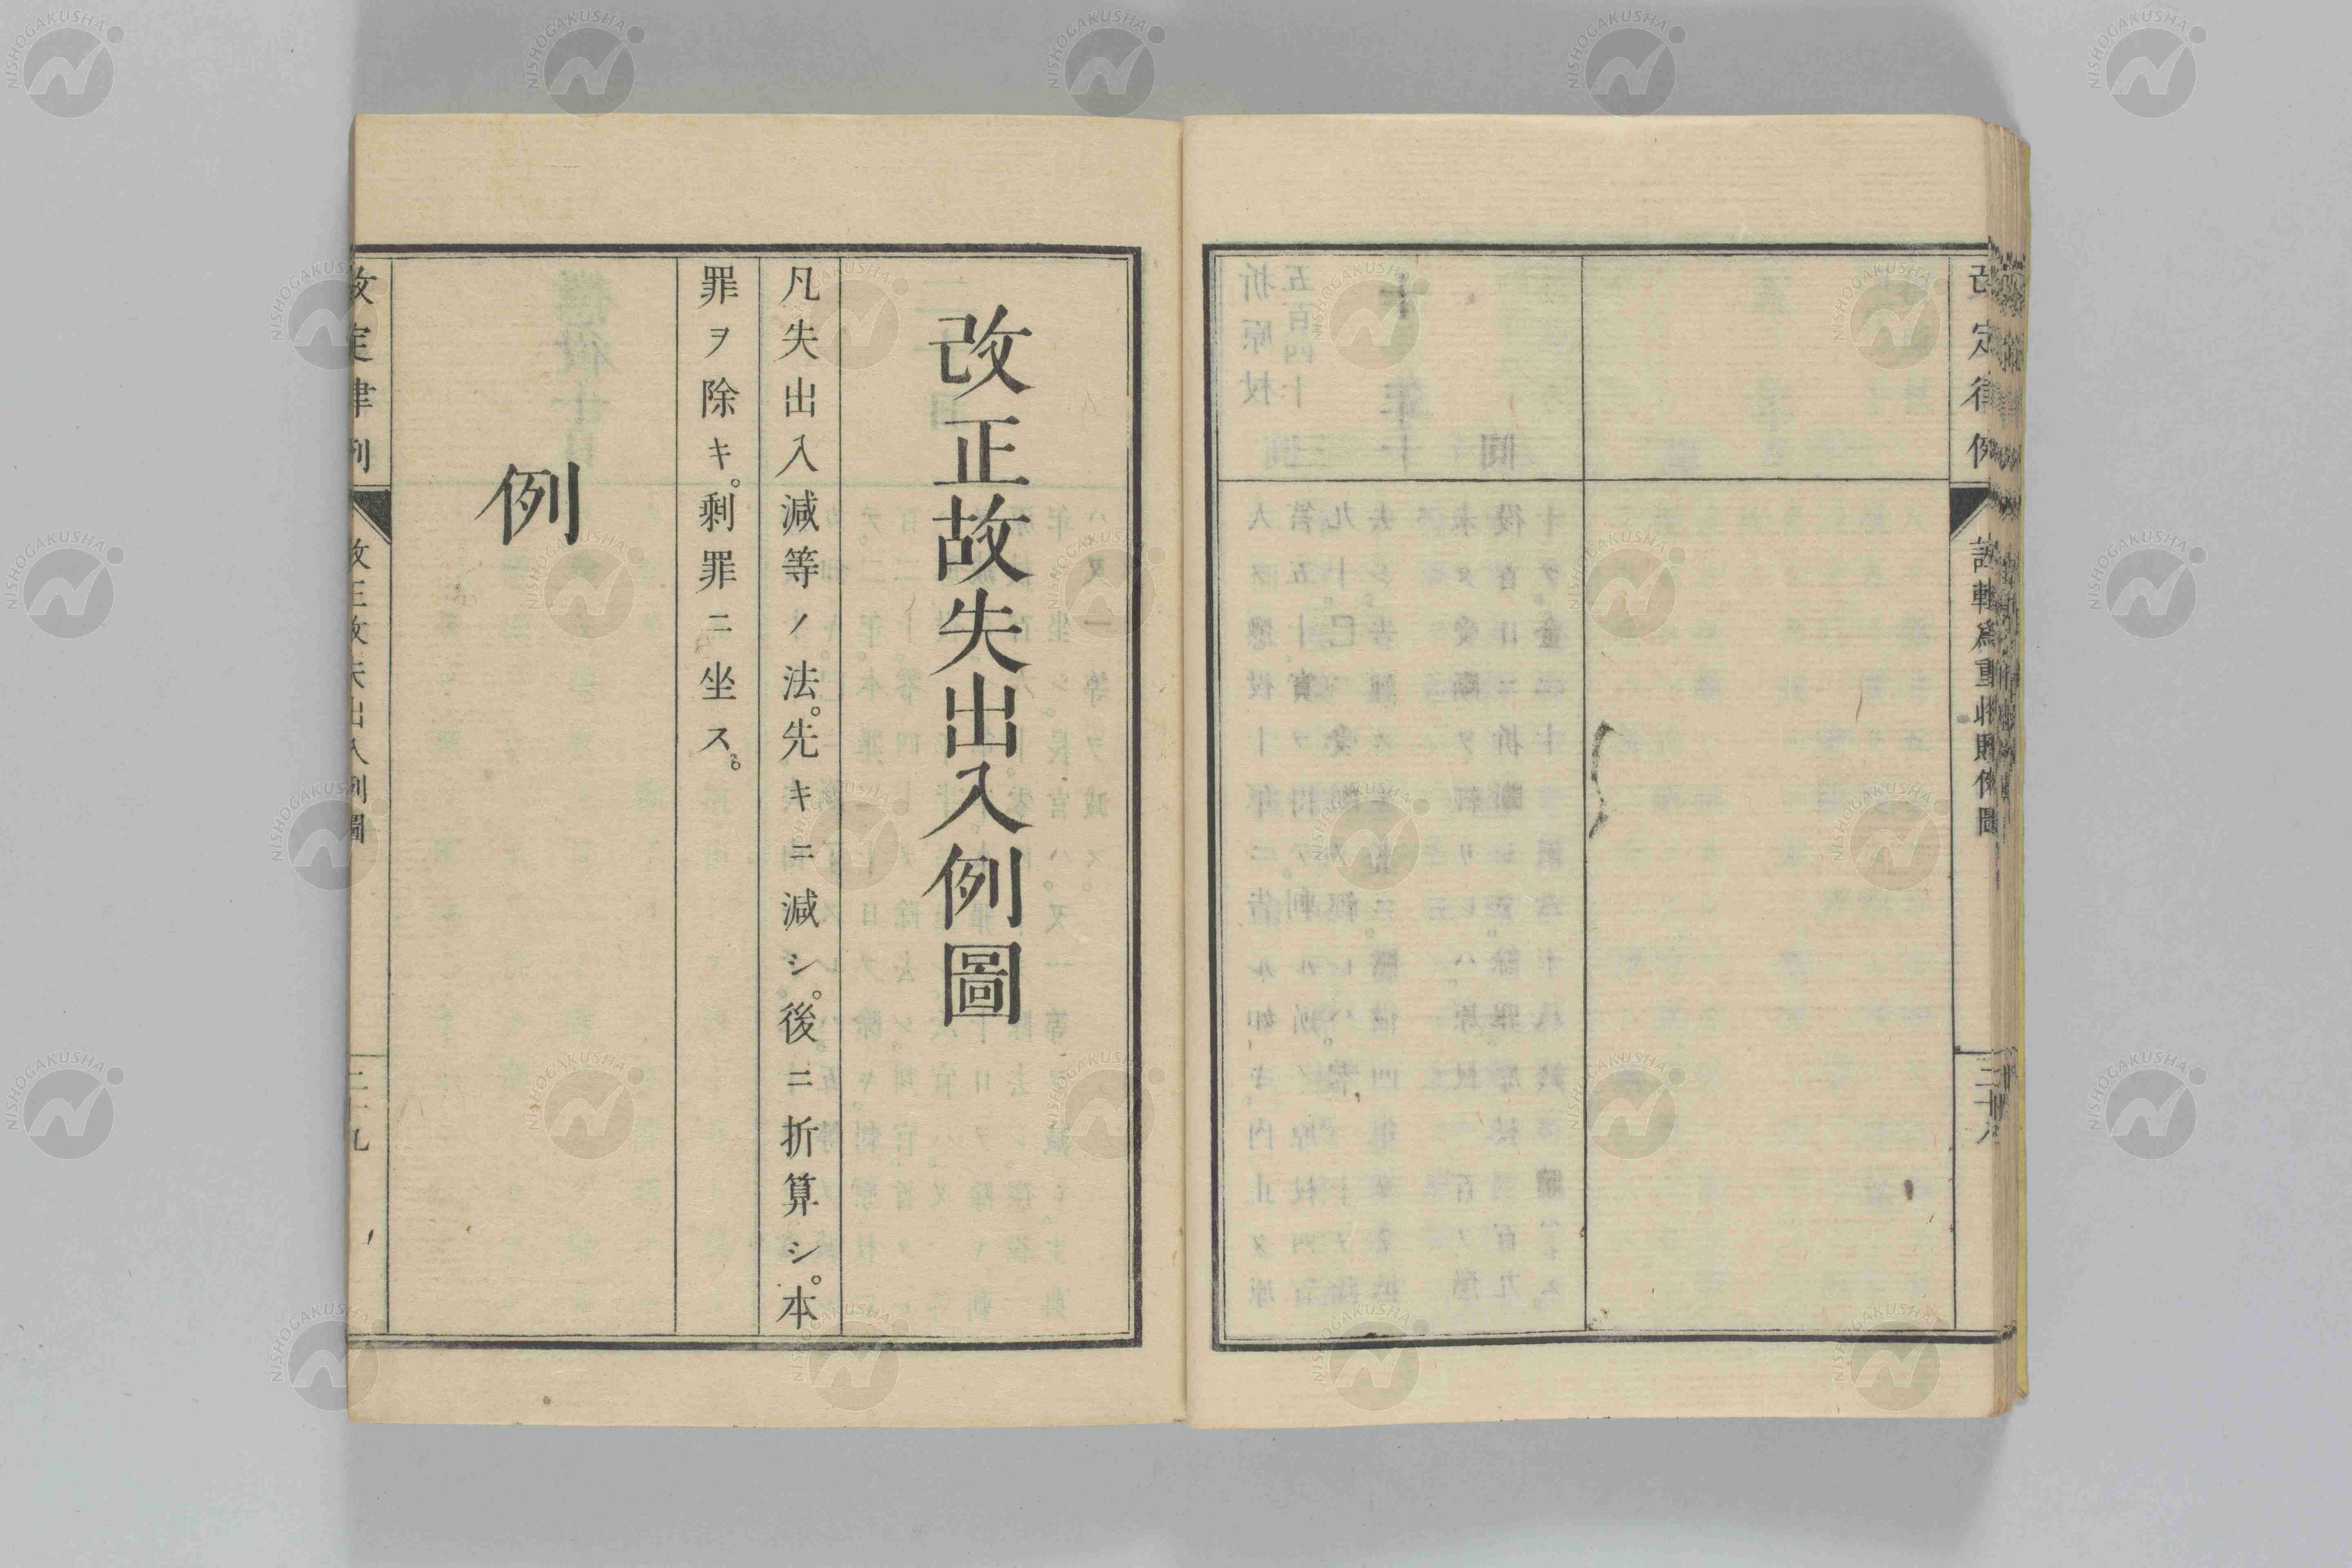 改定律例
誣輕爲重收贖例圖
三十八
改正故失出入例圖
凡失出入減等ノ法。先キニ減シ。後ニ折算シ。本
罪ヲ除キ。剰罪ニ坐ス。
例
改定律例
改正故失出入例圖
三十九
NISHOGAKUSHA